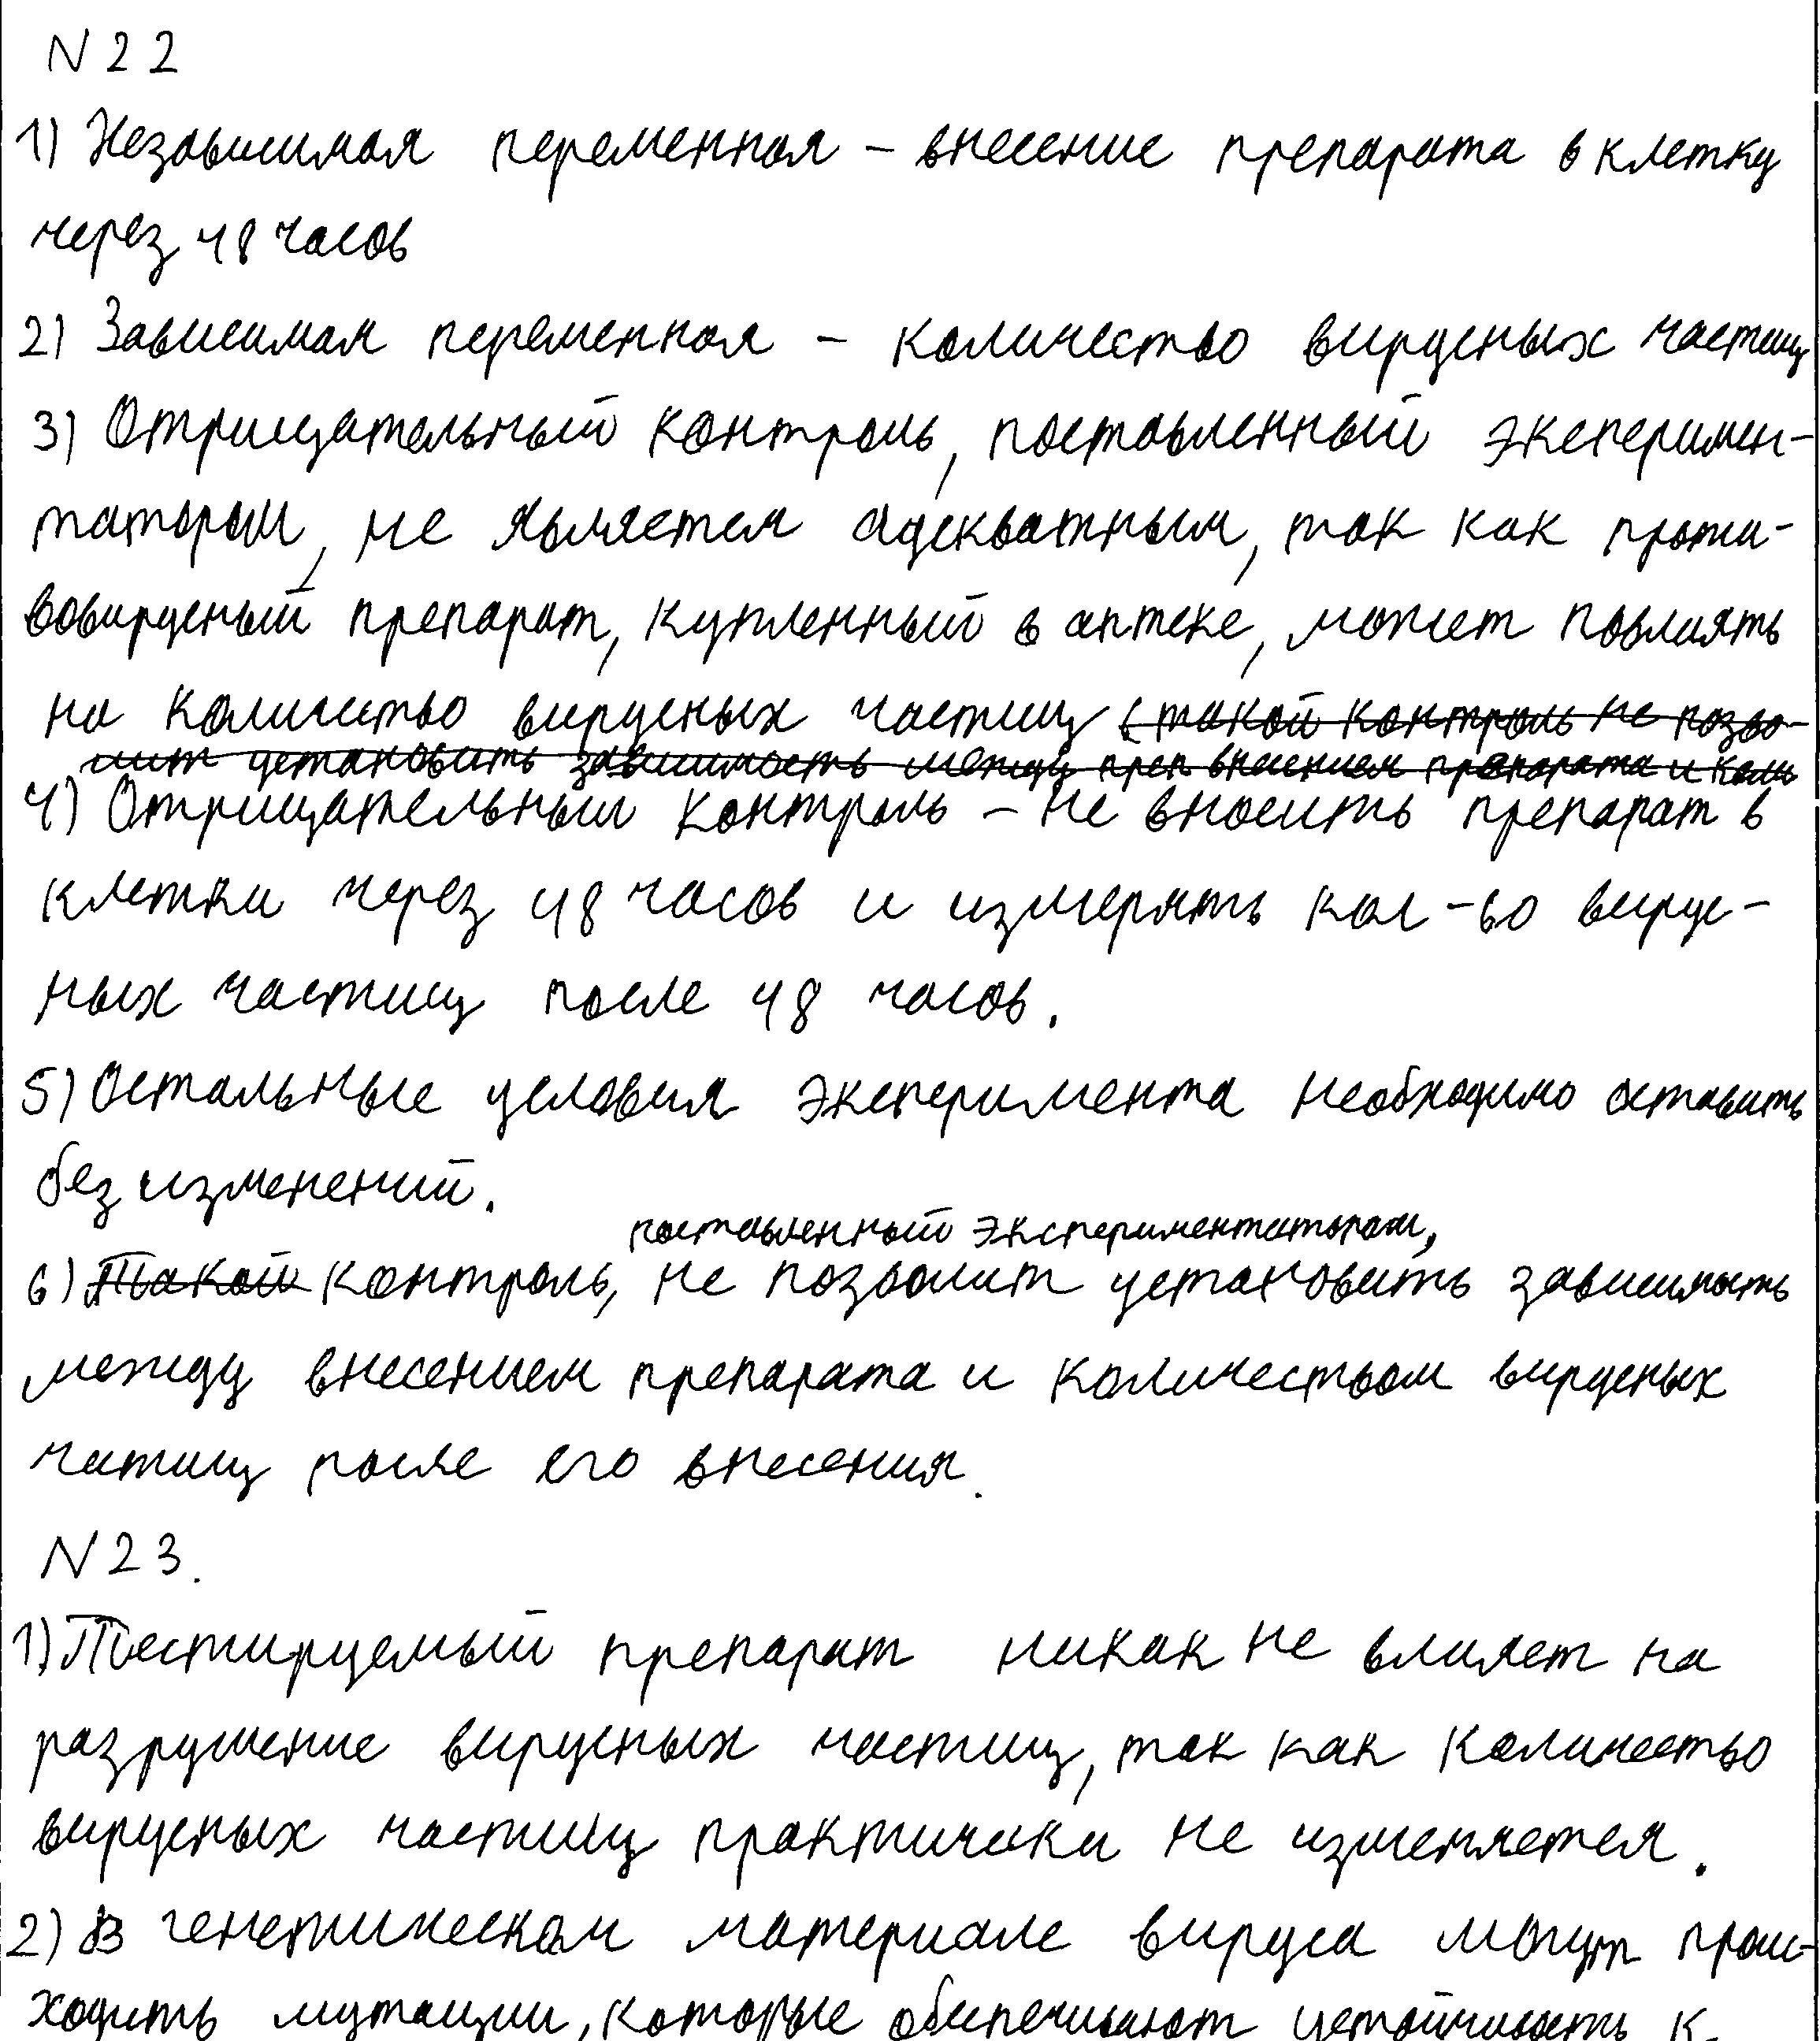 N 22
1) Независимая переменная – внесение препарата в клетку
через 48 часов
2) Зависимая переменная – количество вирусных частиц
3) Отрицательный контроль, поставленный эксперимен-
татором, не является адекватным, так как проти-
вовирусный препарат, купленный в аптеке, может повлиять
на количество вирусных частиц (такой контроль не позво-
лит установить зависимость между преп внесением препарата и коли
4) Отрицательный контроль – не вносить препарат в
клетки через 48 часов и измерять кол-во вирус-
ных частиц после 48 часов.
5) Остальные условия эксперимента необходимо оставить
без изменений.
поставленный экспериментатором,
6) Такой контроль, не позволит установить зависимость
между внесением препарата и количеством вирусных
частиц после его внесения.
N 23.
1) Тестируемый препарат никак не влияет на
разрушение вирусных частиц, так как количество
вирусных частиц практически не изменяется.
2) В генетическом материале вируса могут проис-
ходить мутации, которые обеспечивают устойчивость к